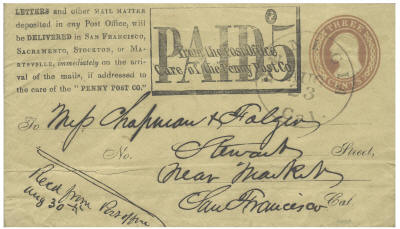 LETTERS and other MAIL MATTER
deposited in any Post Office, will
be DELIVERED in SAN FRANCISCO,
SACRAMENTO, STOCKTON, or MA-
RYSVILLE, immediately on the arri-
val of the mails, if addressed
to the care of the "PENNY POST CO."
PAID 5
From the Post Office
Care of the Penny Post Co.
THREE
CENTS
23
CAL.
To Messrs Chapman & Folger
No. Stewart Street,
near Market
San Francisco Cal.
Recd from Post office
Aug 30th